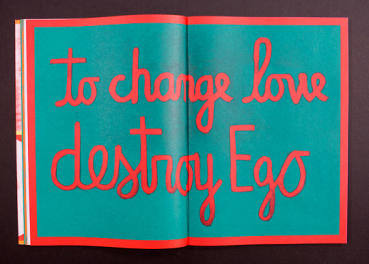 to change love
destroy Ego